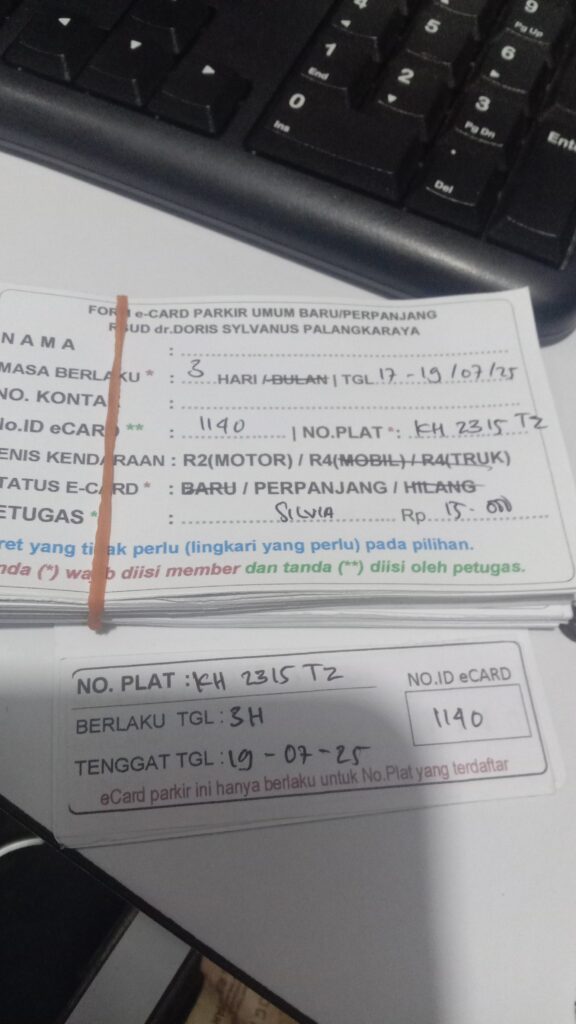 9
Pg Up
4
5
6
1
End
2
3
Pg Dn
0
Ins
.
Del
Ente
FORM e-CARD PARKIR UMUM BARU/PERPANJANG
RSUD dr.DORIS SYLVANUS PALANGKARAYA
NAMA :
MASA BERLAKU * : 3 HARI / BULAN | TGL 17 - 19 /07/25
NO. KONTA :
No.ID eCARD ** : 1140 | NO.PLAT *: KH 2315 TZ
ENIS KENDARAAN : R2(MOTOR) / R4(MOBIL) / R4(TRUK)
TATUS E-CARD * : BARU / PERPANJANG / HILANG
ETUGAS * : SILVIA Rp. 15.000
ret yang tidak perlu (lingkari yang perlu) pada pilihan.
nda (*) wajib diisi member dan tanda (**) diisi oleh petugas.
NO. PLAT : KH 2315 TZ
NO.ID eCARD
BERLAKU TGL : 3H
1140
TENGGAT TGL : 19 - 07 - 25
eCard parkir ini hanya berlaku untuk No.Plat yang terdaftar